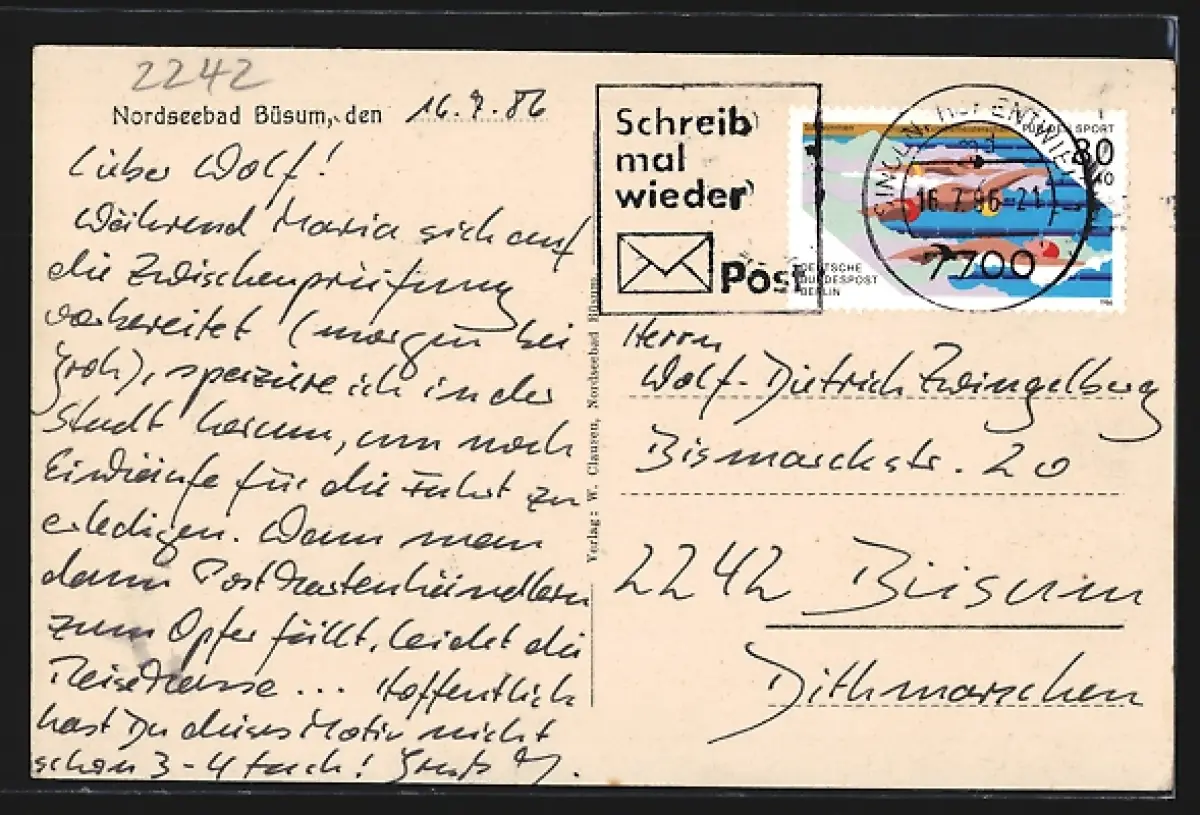 2242
Nordseebad Büsum, den 16.7.86
Lieber Wolf!
Während Maria sich auf
die Zwischenprüfung
vorbereitet (morgen bei
), spaziere ich in der
Stadt herum, um noch
Einkäufe für die Fahrt zu
erledigen. Wenn man
dann Postkartenhändlern
zum Opfer fällt, leidet die
Reisekasse... Hoffentlich
hast Du dieses Motiv nicht
schon 3-4 fach!
Verlag: W. Clausen, Nordseebad Büsum
Schreib
mal
wieder
Post
SINGEN, HOHENTWIEL
16.7.86-21
7700
FÜR DEN SPORT
80
+40
DEUTSCHE
BUNDESPOST
BERLIN
1986
Herrn
Wolf-Dietrich Zwingelberg
Bismarckstr. 20
2242 Büsum
Dithmarschen